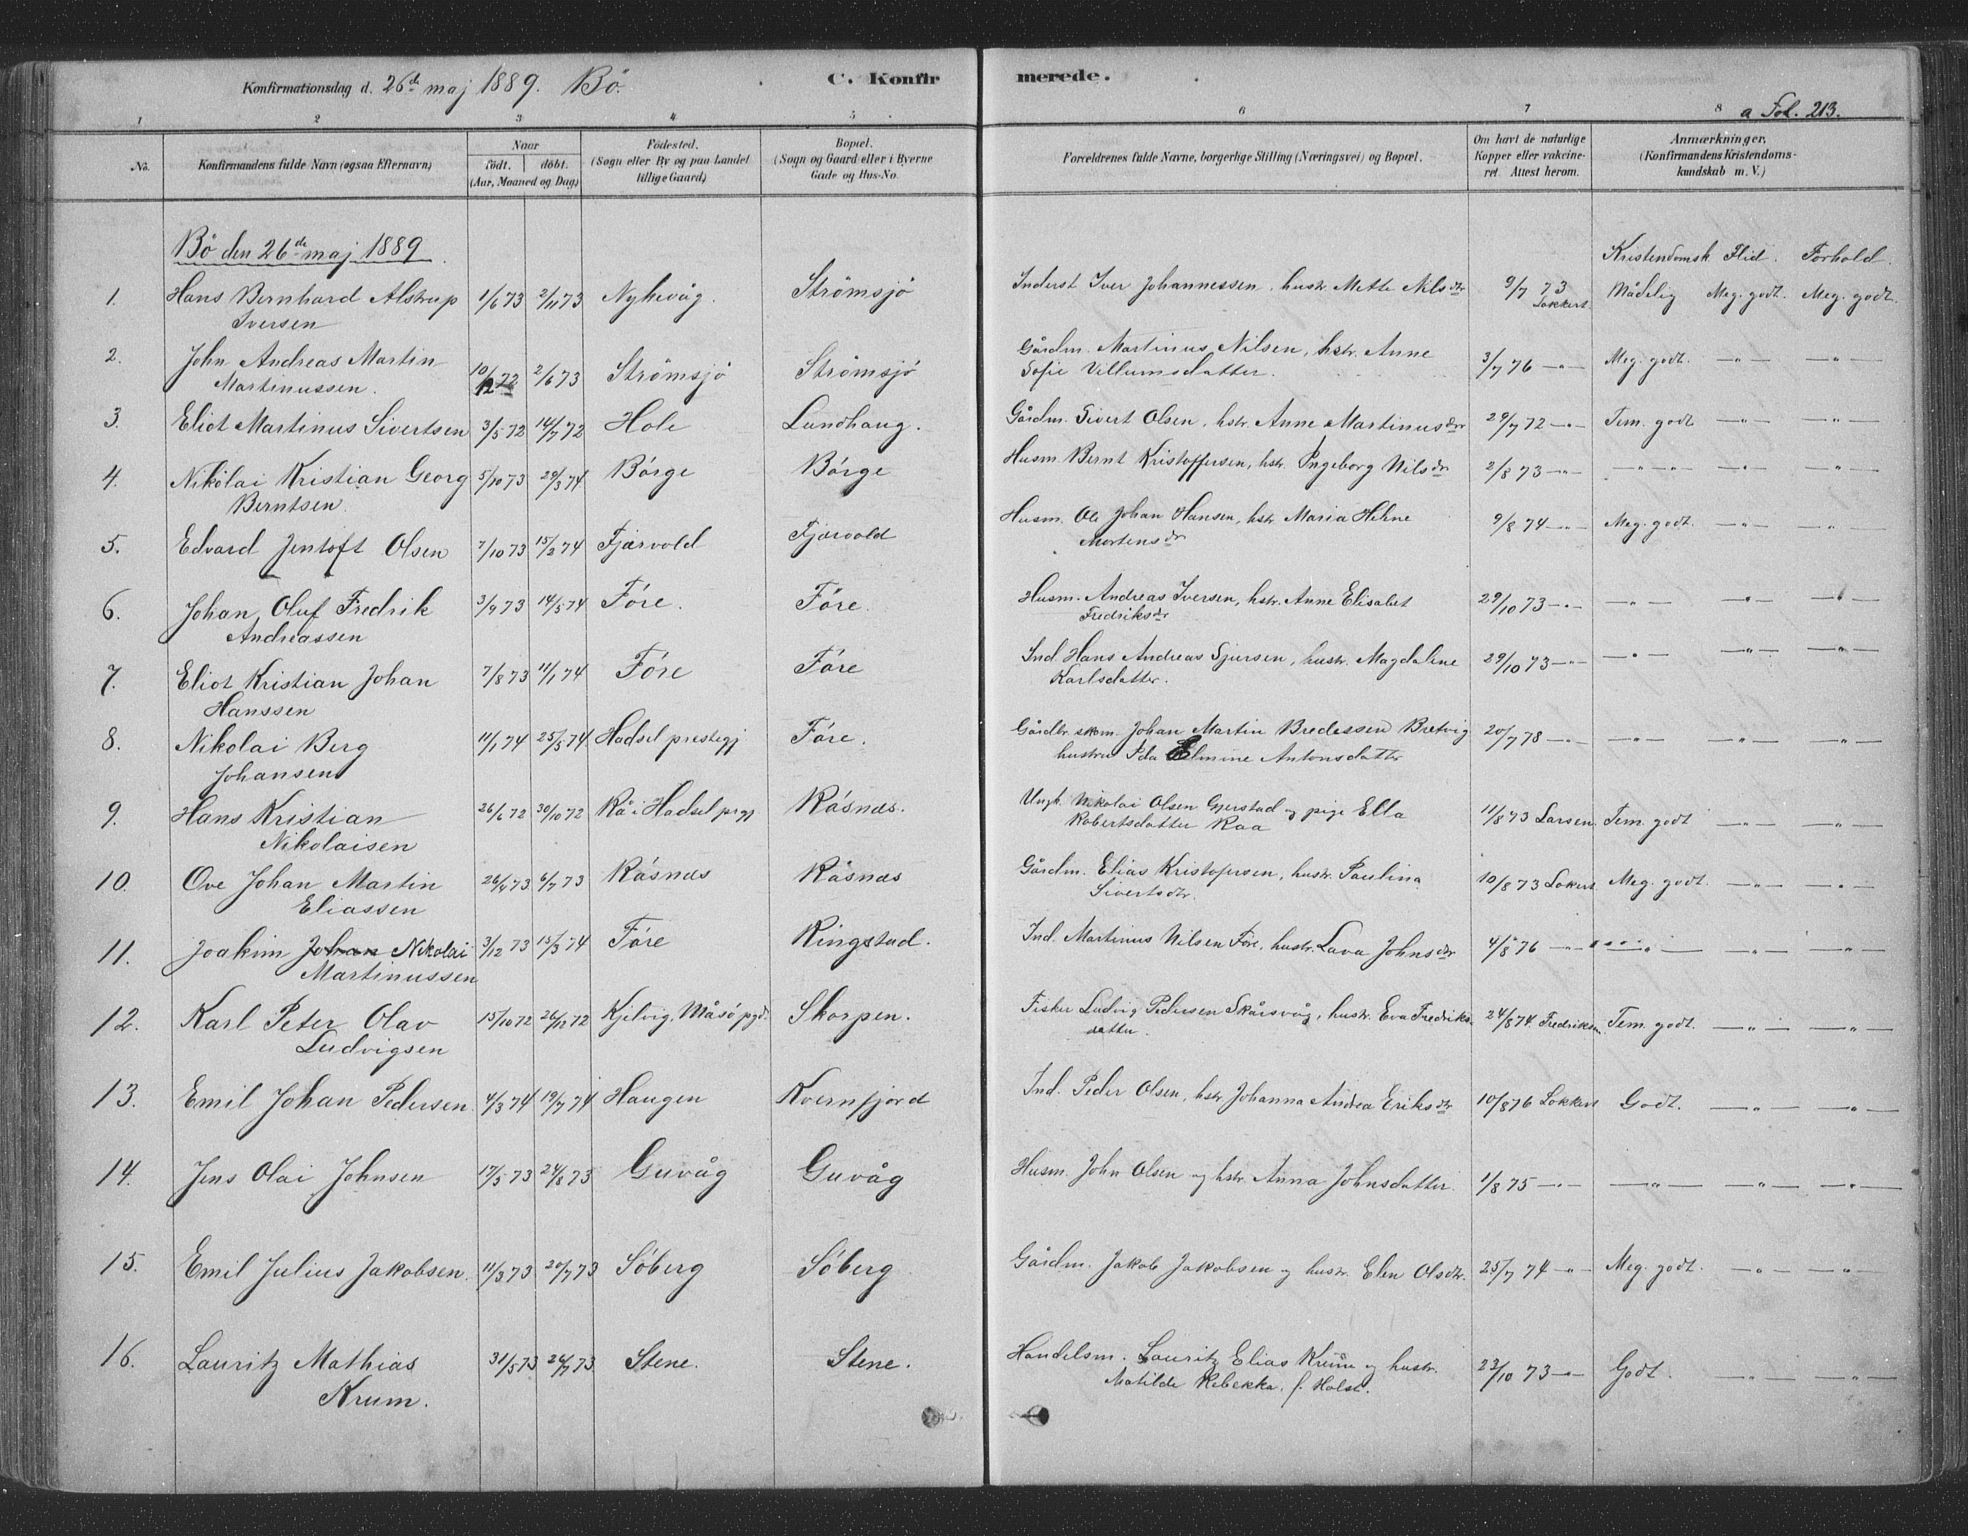 Konfirmationsdag d. 26de maj 1889. Bö. C. Konfirmerede.
a Fol. 213.
1 2 3 4 5 6 7 8
No. Konfirmandens fulde Navn (ogsaa Efternavn) Naar födt. döbt. (Aar, Maaned og Dag) Födested. (Sogn eller By og paa Landet tillige Gaard) Bopæl. (Sogn og Gaard eller i Byerne Gade og Hus-No. Forældrenes fulde Navne, borgerlige Stilling (Næringsvei) og Bopæl. Om havt de naturlige Kopper eller vakcineret. Attest herom. Anmærkninger, (Konfirmandens Kristendomskundskab m. V.)
Bö den 26de maj 1889
Kristendomsk Flid. Forhold.
1. Hans Bernhard Alstrup 1/6 73 2/11 73 Nykvåg. Strömsjö Inderst Iver Johannessen, hustr. Mette Nilsdtr 9/7 73 Lokkert Mådelig Meg. godt. Meg. godt.
Iversen
2. John Andreas Martin 10/12 72 2/6 73 Strömsjö Strömsjö Gårdm. Martinus Nilsen, hstr. Anne 3/7 76 —"— Meg. godt. —"— —"—
Martinussen. Sofie Villumsdatter.
3. Eliot Martinus Sivertsen 3/5 72 14/7 72 Hole Lundhaug. Gårdm. Sivert Olsen, hstr. Anne Martinusdtr 29/7 72 —"— Tem. godt —"— —"—
4. Nikolai Kristian Georg 5/10 73 29/3 74 Börge Börge Husm. Bernt Kristoffersen, hstr. Ingeborg Nilsdr 2/8 73 —"— —"—"— —"— —"—
Berntsen.
5. Edvard Jentoft Olsen 7/10 73 15/2 74 Fjærvold Fjærvold Husm. Ole Johan Hansen, hstr. Maria Helene 9/8 74 —"— Meg. godt. —"— —"—
Mortensdr
6. Johan Oluf Fredrik 3/9 73 14/5 74 Före. Före. Husm. Andreas Iversen, hstr. Anne Elisabet 29/10 73 —"— —"— —"— —"—
Andreassen Fredriksdr
7. Eliot Kristian Johan 7/8 73 11/1 74 Före Före Ind. Hans Andreas Sjursen, hustr. Magdaline 29/10 73 —"— —"— —"— —"—
Hanssen Karlsdatter.
8. Nikolai Berg 11/1 74 25/5 74 Hadsel prestegj Före. Gårdbr. skom. Johan Martin Bredessen Bretvig 20/7 78 —"— —"— —"— —"—
Johansen hustru Ida Elmine Antonsdatter
9. Hans Kristian 26/6 72 30/10 72 Rå i Hadsel prgj Råsnæs. Ungk. Nikolai Olsen Gjerstad og pige Ella 11/8 73 Larsen Tem. godt —"— —"—
Nikolaisen Robertsdatter Raa
10. Ove Johan Martin 26/4 73 6/7 73 Råsnæs Råsnæs Gårdm. Elias Kristofersen, hustr. Paulina 10/8 73 Lokkert Meg. godt. —"— —"—
Eliassen Sivertsdtr.
11. Joakim Johan Nikolai 3/12 73 15/3 74 Före Ringstad. Ind. Martinus Nilsen Före, hustr. Lava Johnsdtr 4/8 76 —"— —"— —"— —"—
Martinussen
12. Karl Peter Olav 15/10 72 26/12 72 Kjelvig, Måsö pgd. Skorpen. Fisker Ludvig Pedersen Skårsvåg, hustr. Eva Fredriks- 24/8 74 Fredriksen Tem. godt. —"— —"—
Ludvigsen datter.
13. Emil Johan Pedersen 4/3 74 19/7 74 Haugen Kvernfjord Ind. Peder Olsen, hstr. Johanna Andrea Eriksdtr 10/8 76 Lokkert Godt. —"— —"—
14. Jens Olai Johnsen 17/5 73 24/8 73 Guvåg Guvåg Husm. John Olsen og hstr. Anna Johnsdatter. 1/8 75 —"— —"— —"— —"—
15. Emil Julius Jakobsen. 11/3 73 20/7 73 Söberg Söberg Gårdm. Jakob Jakobsen og hustr. Elen Olsdtr. 25/7 74 —"— Meg. godt. —"— —"—
16. Lauritz Mathias 31/5 73 26/7 73 Stene. Stene. Handelsm. Lauritz Elias Krum og hustr. 23/10 73 —"— Godt. —"— —"—
Krum. Matilde Rebekka, f. Holst.